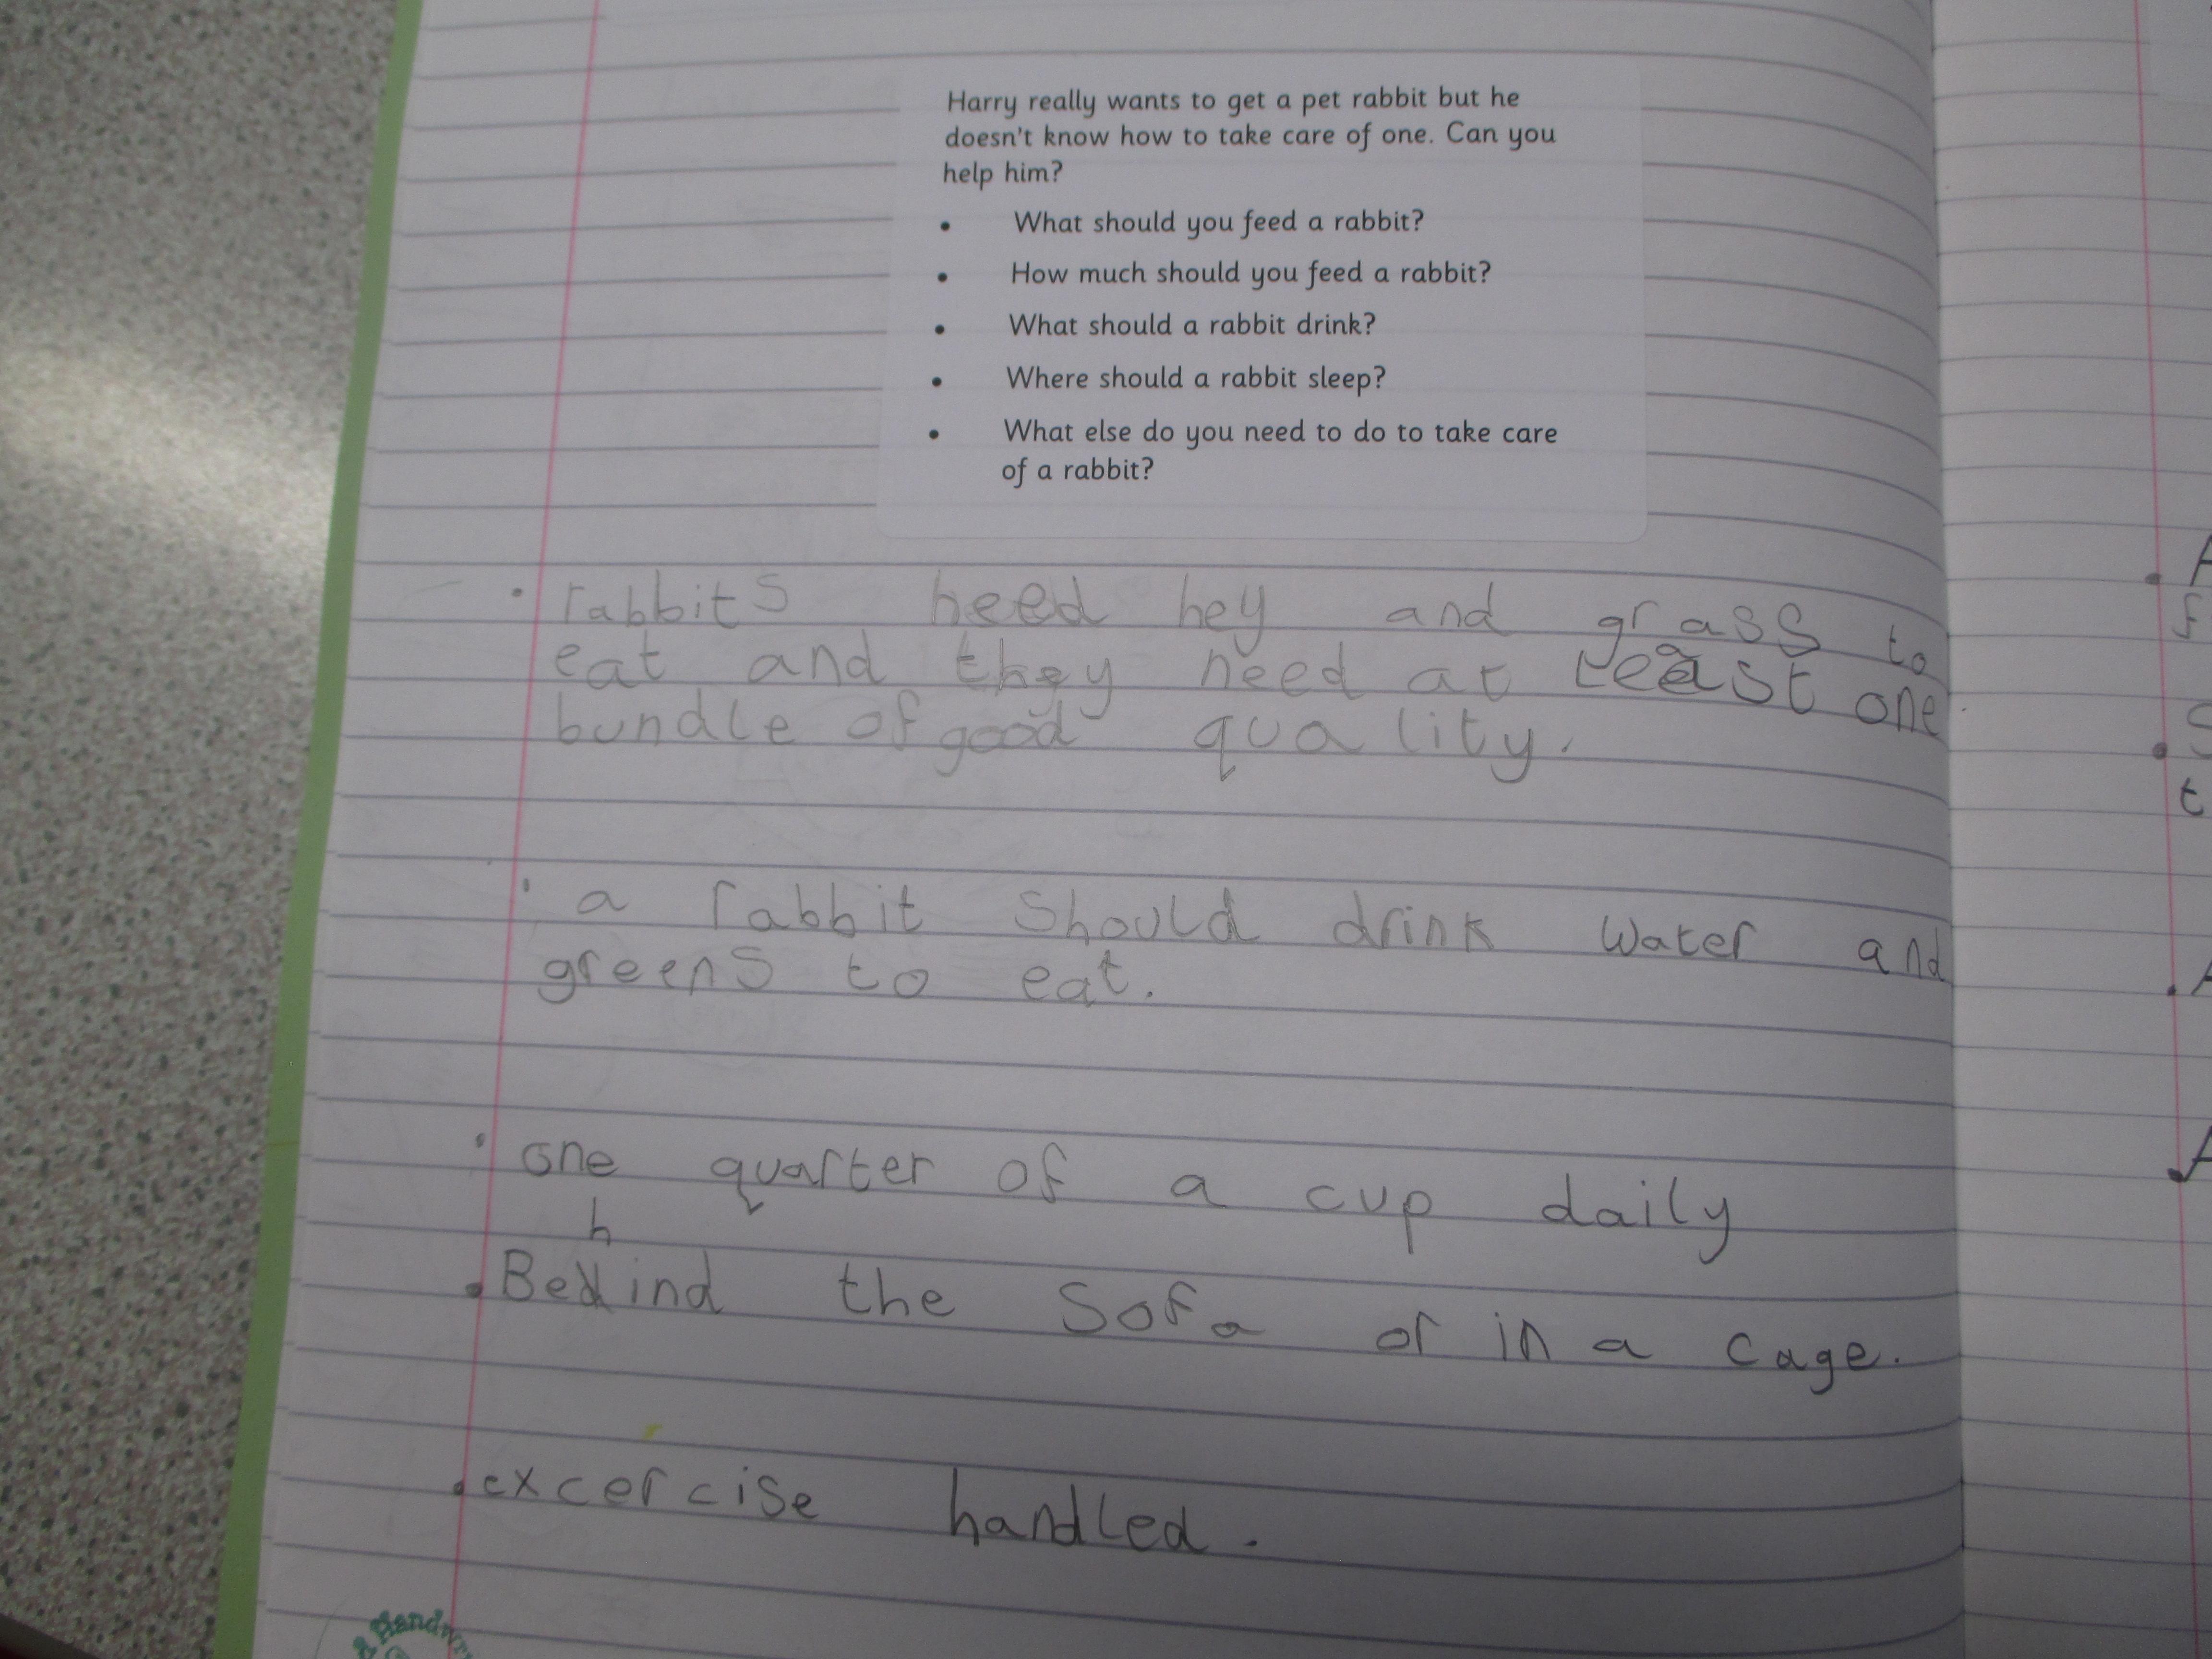 Harry really wants to get a pet rabbit but he
doesn't know how to take care of one. Can you
help him?
• What should you feed a rabbit?
• How much should you feed a rabbit?
• What should a rabbit drink?
• Where should a rabbit sleep?
• What else do you need to do to take care
of a rabbit?
• rabbits need hey and grass to
eat and they need at least one
bundle of good quality.
• a rabbit should drink water and
greens to eat.
• one quarter of a cup daily
h
• Behind the sofa or in a cage.
• excercise handled.
A